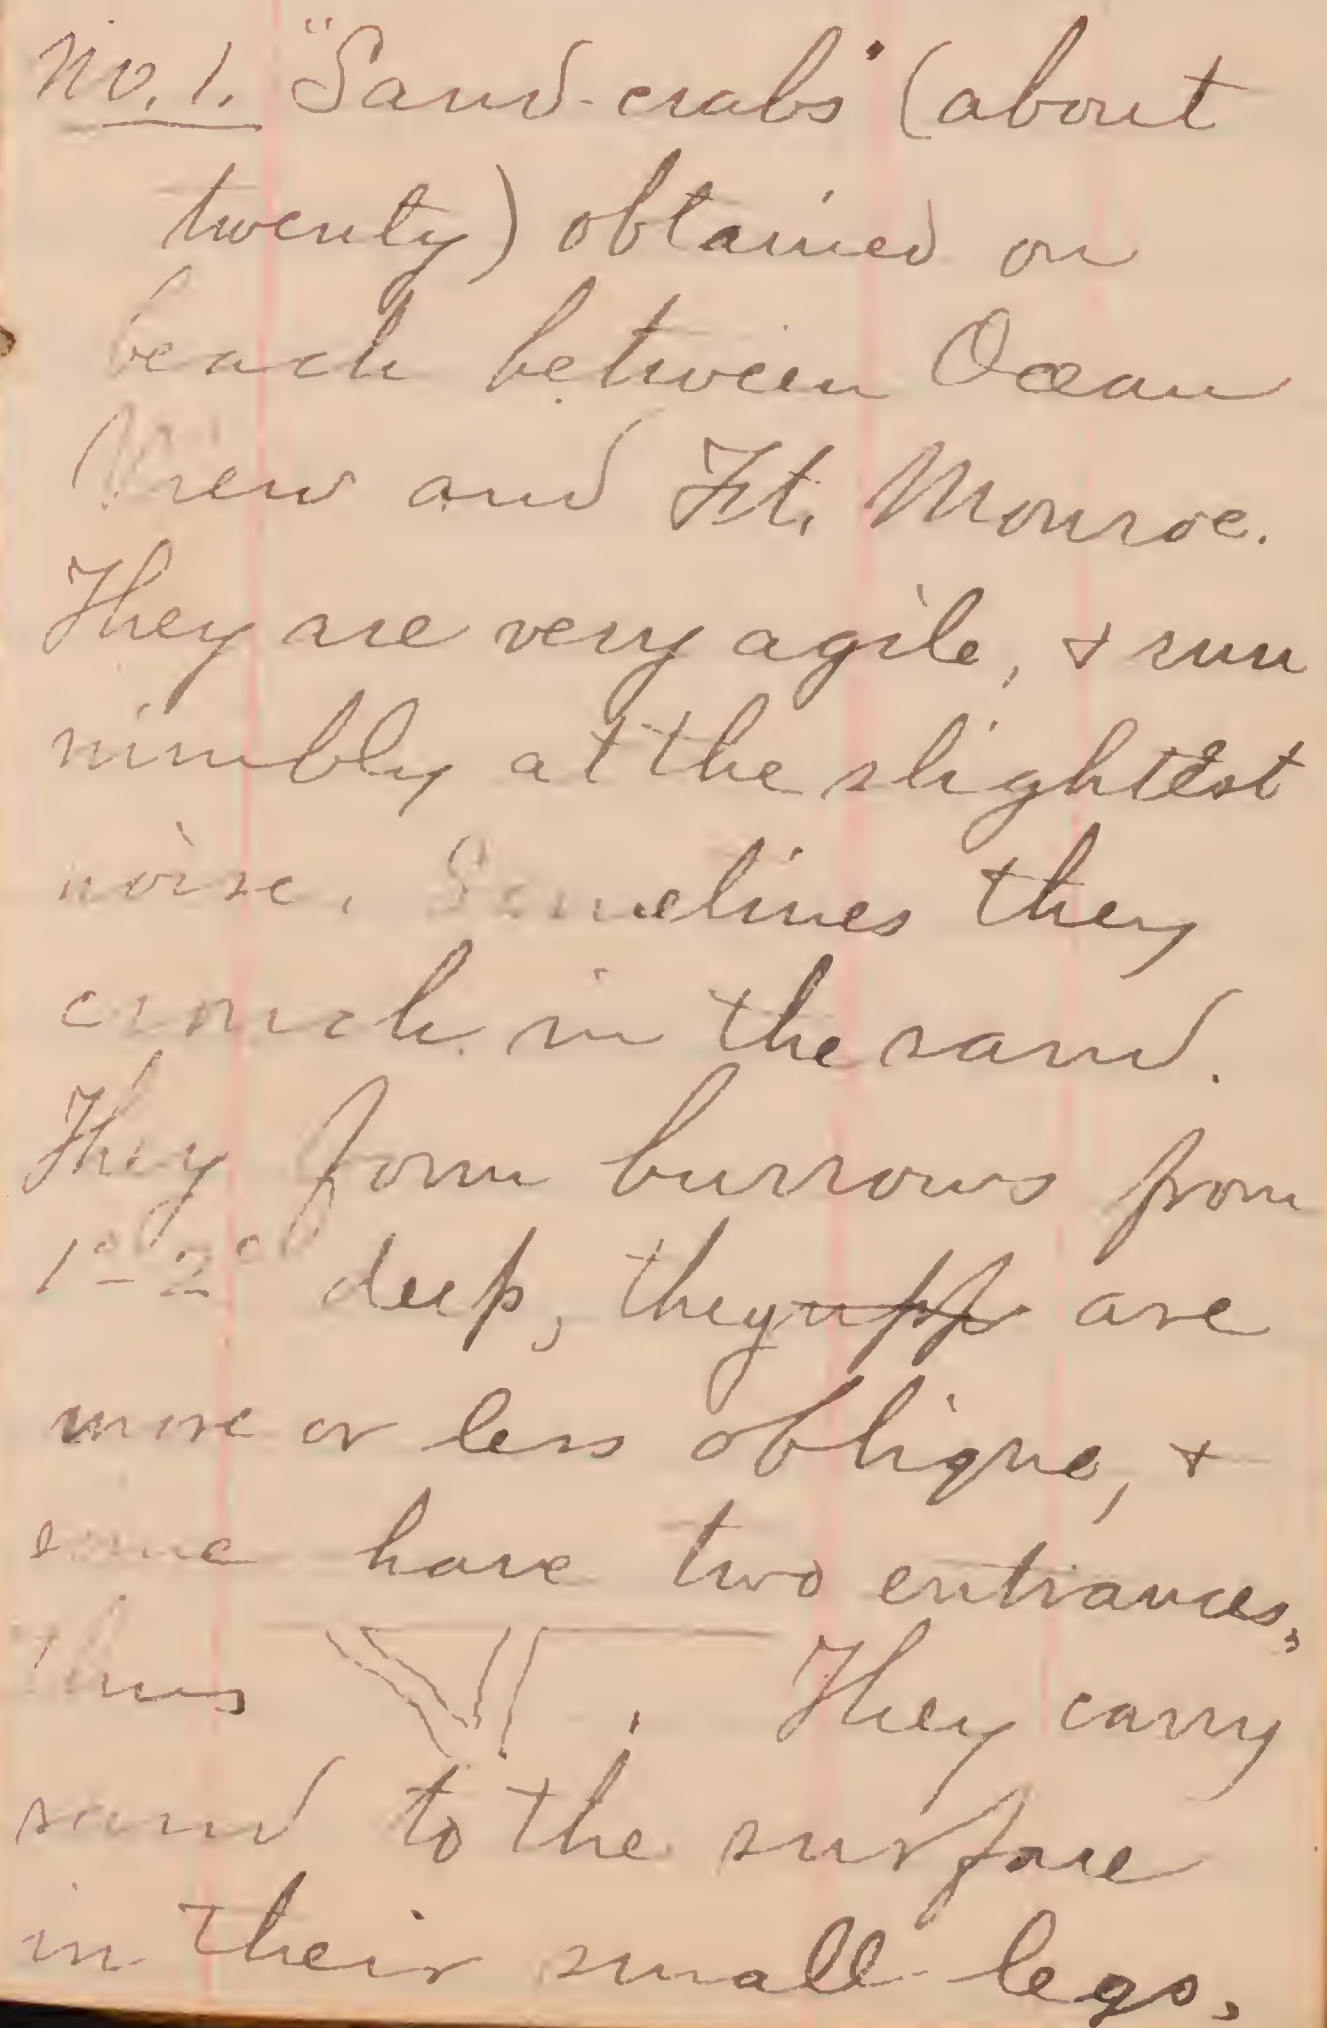 No. 1. "Sand-crabs" (about
twenty) obtained on
beach between Ocean
View and Ft. Monroe.
They are very agile, & run
nimbly at the slightest
noise. Sometimes they
crouch in the sand.
They form burrows from
1°-2° deep, they upp are
more or less oblique, &
some have two entrances,
thus . They carry
sand to the surface
in their small legs,